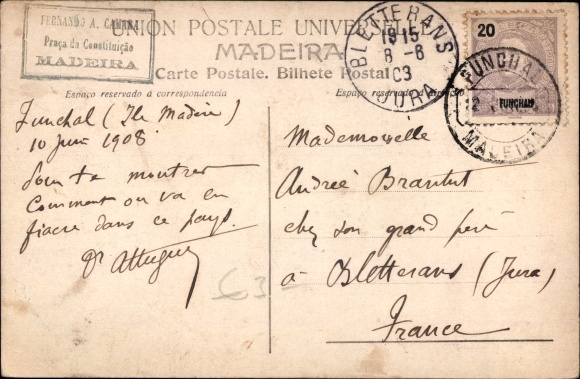 FERNANDO A. CAMARA
Praça da Constituição
MADEIRA
UNION POSTALE UNIVERSELLE
MADEIRA
Carte Postale. Bilhete Postal
Espaço reservado á correspondencia
Espaço reservado
BLETTERANS
1915
8 -6
03
JURA
20
FUNCHAL
FUNCHAL
12
MADEIRA
Funchal (Ile Madère)
10 Juin 1908
Pour te montrer
Comment on va en
fiacre dans ce pays.
Mademoiselle
Andrée Brantut
chez son grand père
à Bletterans (Jura)
France